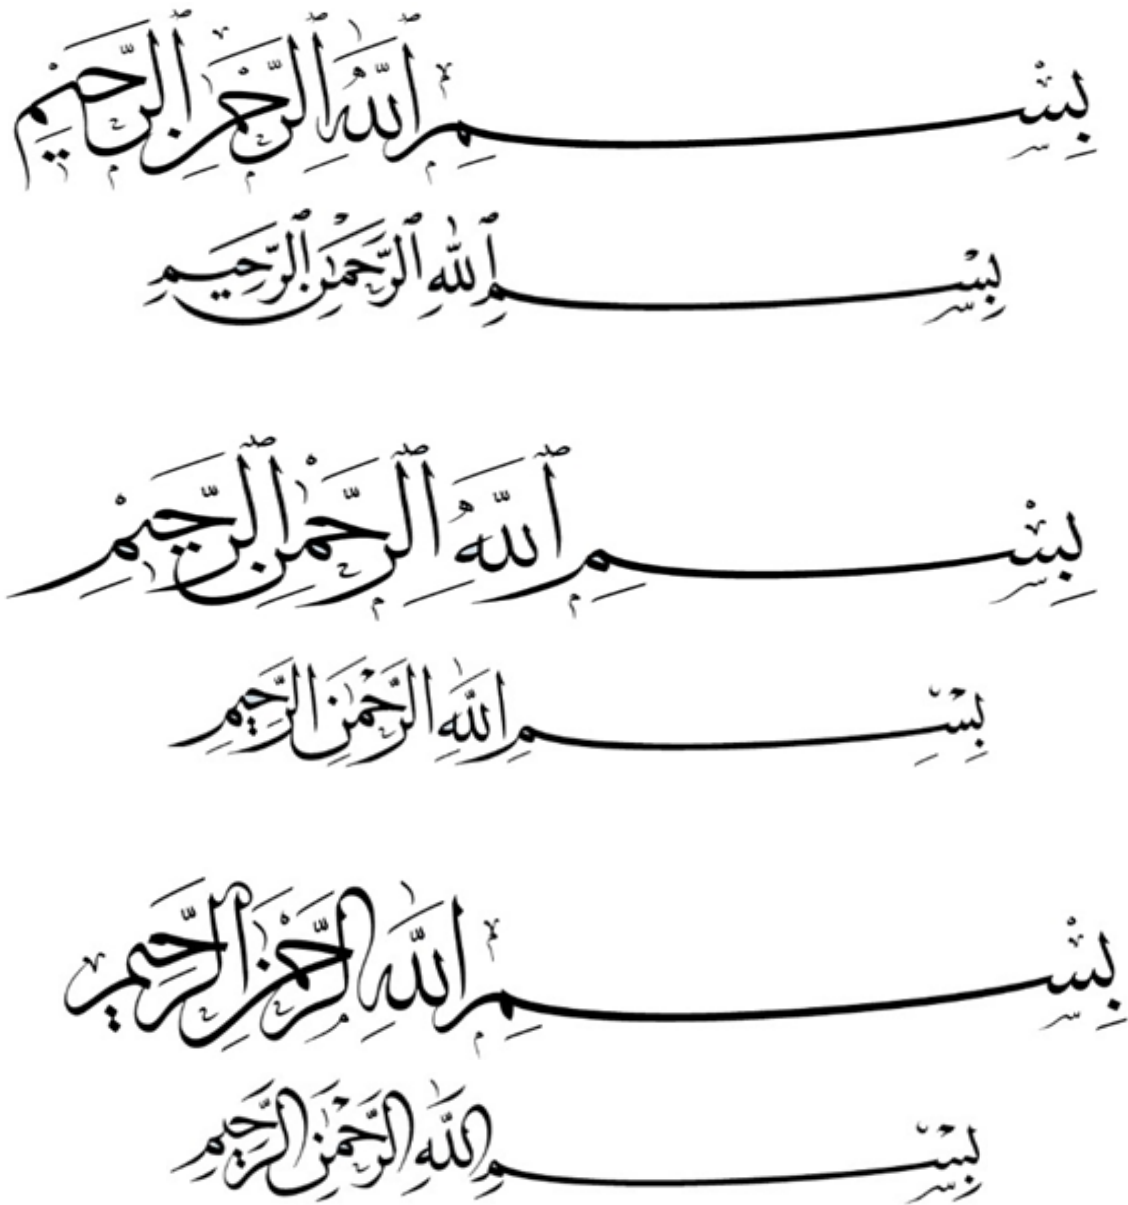 بِسْمِ ٱللَّهِ ٱلرَّحْمَٰنِ ٱلرَّحِيمِ
بِسْمِ ٱللَّهِ ٱلرَّحْمَٰنِ ٱلرَّحِيمِ
بِسْمِ ٱللَّهِ ٱلرَّحْمَٰنِ ٱلرَّحِيمِ
بِسْمِ اللَّهِ الرَّحْمَٰنِ الرَّحِيمِ
بِسْمِ اللَّهِ الرَّحْمَٰنِ الرَّحِيمِ
بِسْمِ اللَّهِ الرَّحْمَٰنِ الرَّحِيمِ